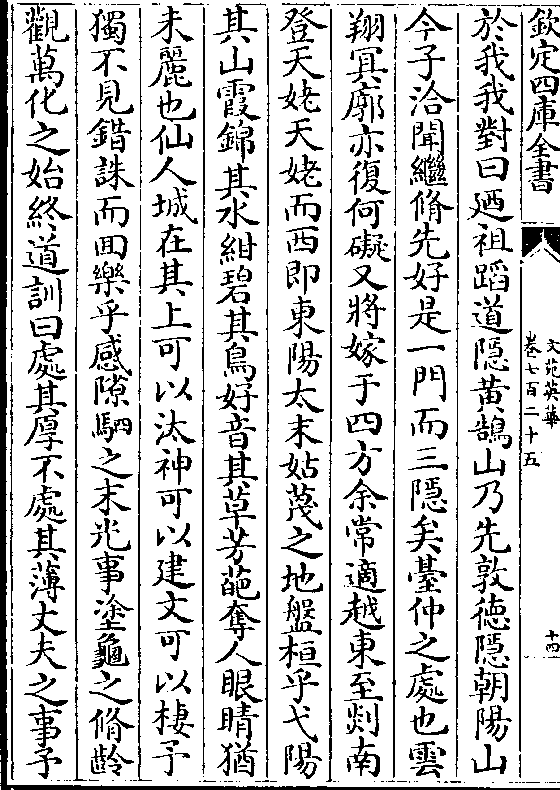 欽定四庫全書
文苑英華
卷七百二十五
十四
於我我對曰廼祖蹈道隱黄鵠山乃先敦德隱朝陽山
今子洽聞繼脩先好是一門而三隱矣臺仲之處也雲
翔冥廓亦復何礙又將嫁于四方余常適越東至剡南
登天姥天姥而西即東陽太末姑蔑之地盤桓乎弋陽
其山霞錦其水紺碧其鳥好音其草芳葩奪人眼睛猶
未麗也仙人城在其上可以汰神可以建文可以棲予
獨不見錯誅而囬樂乎感隙駟之末光事塗龜之脩齡
觀萬化之始終道訓曰處其厚不處其薄丈夫之事予